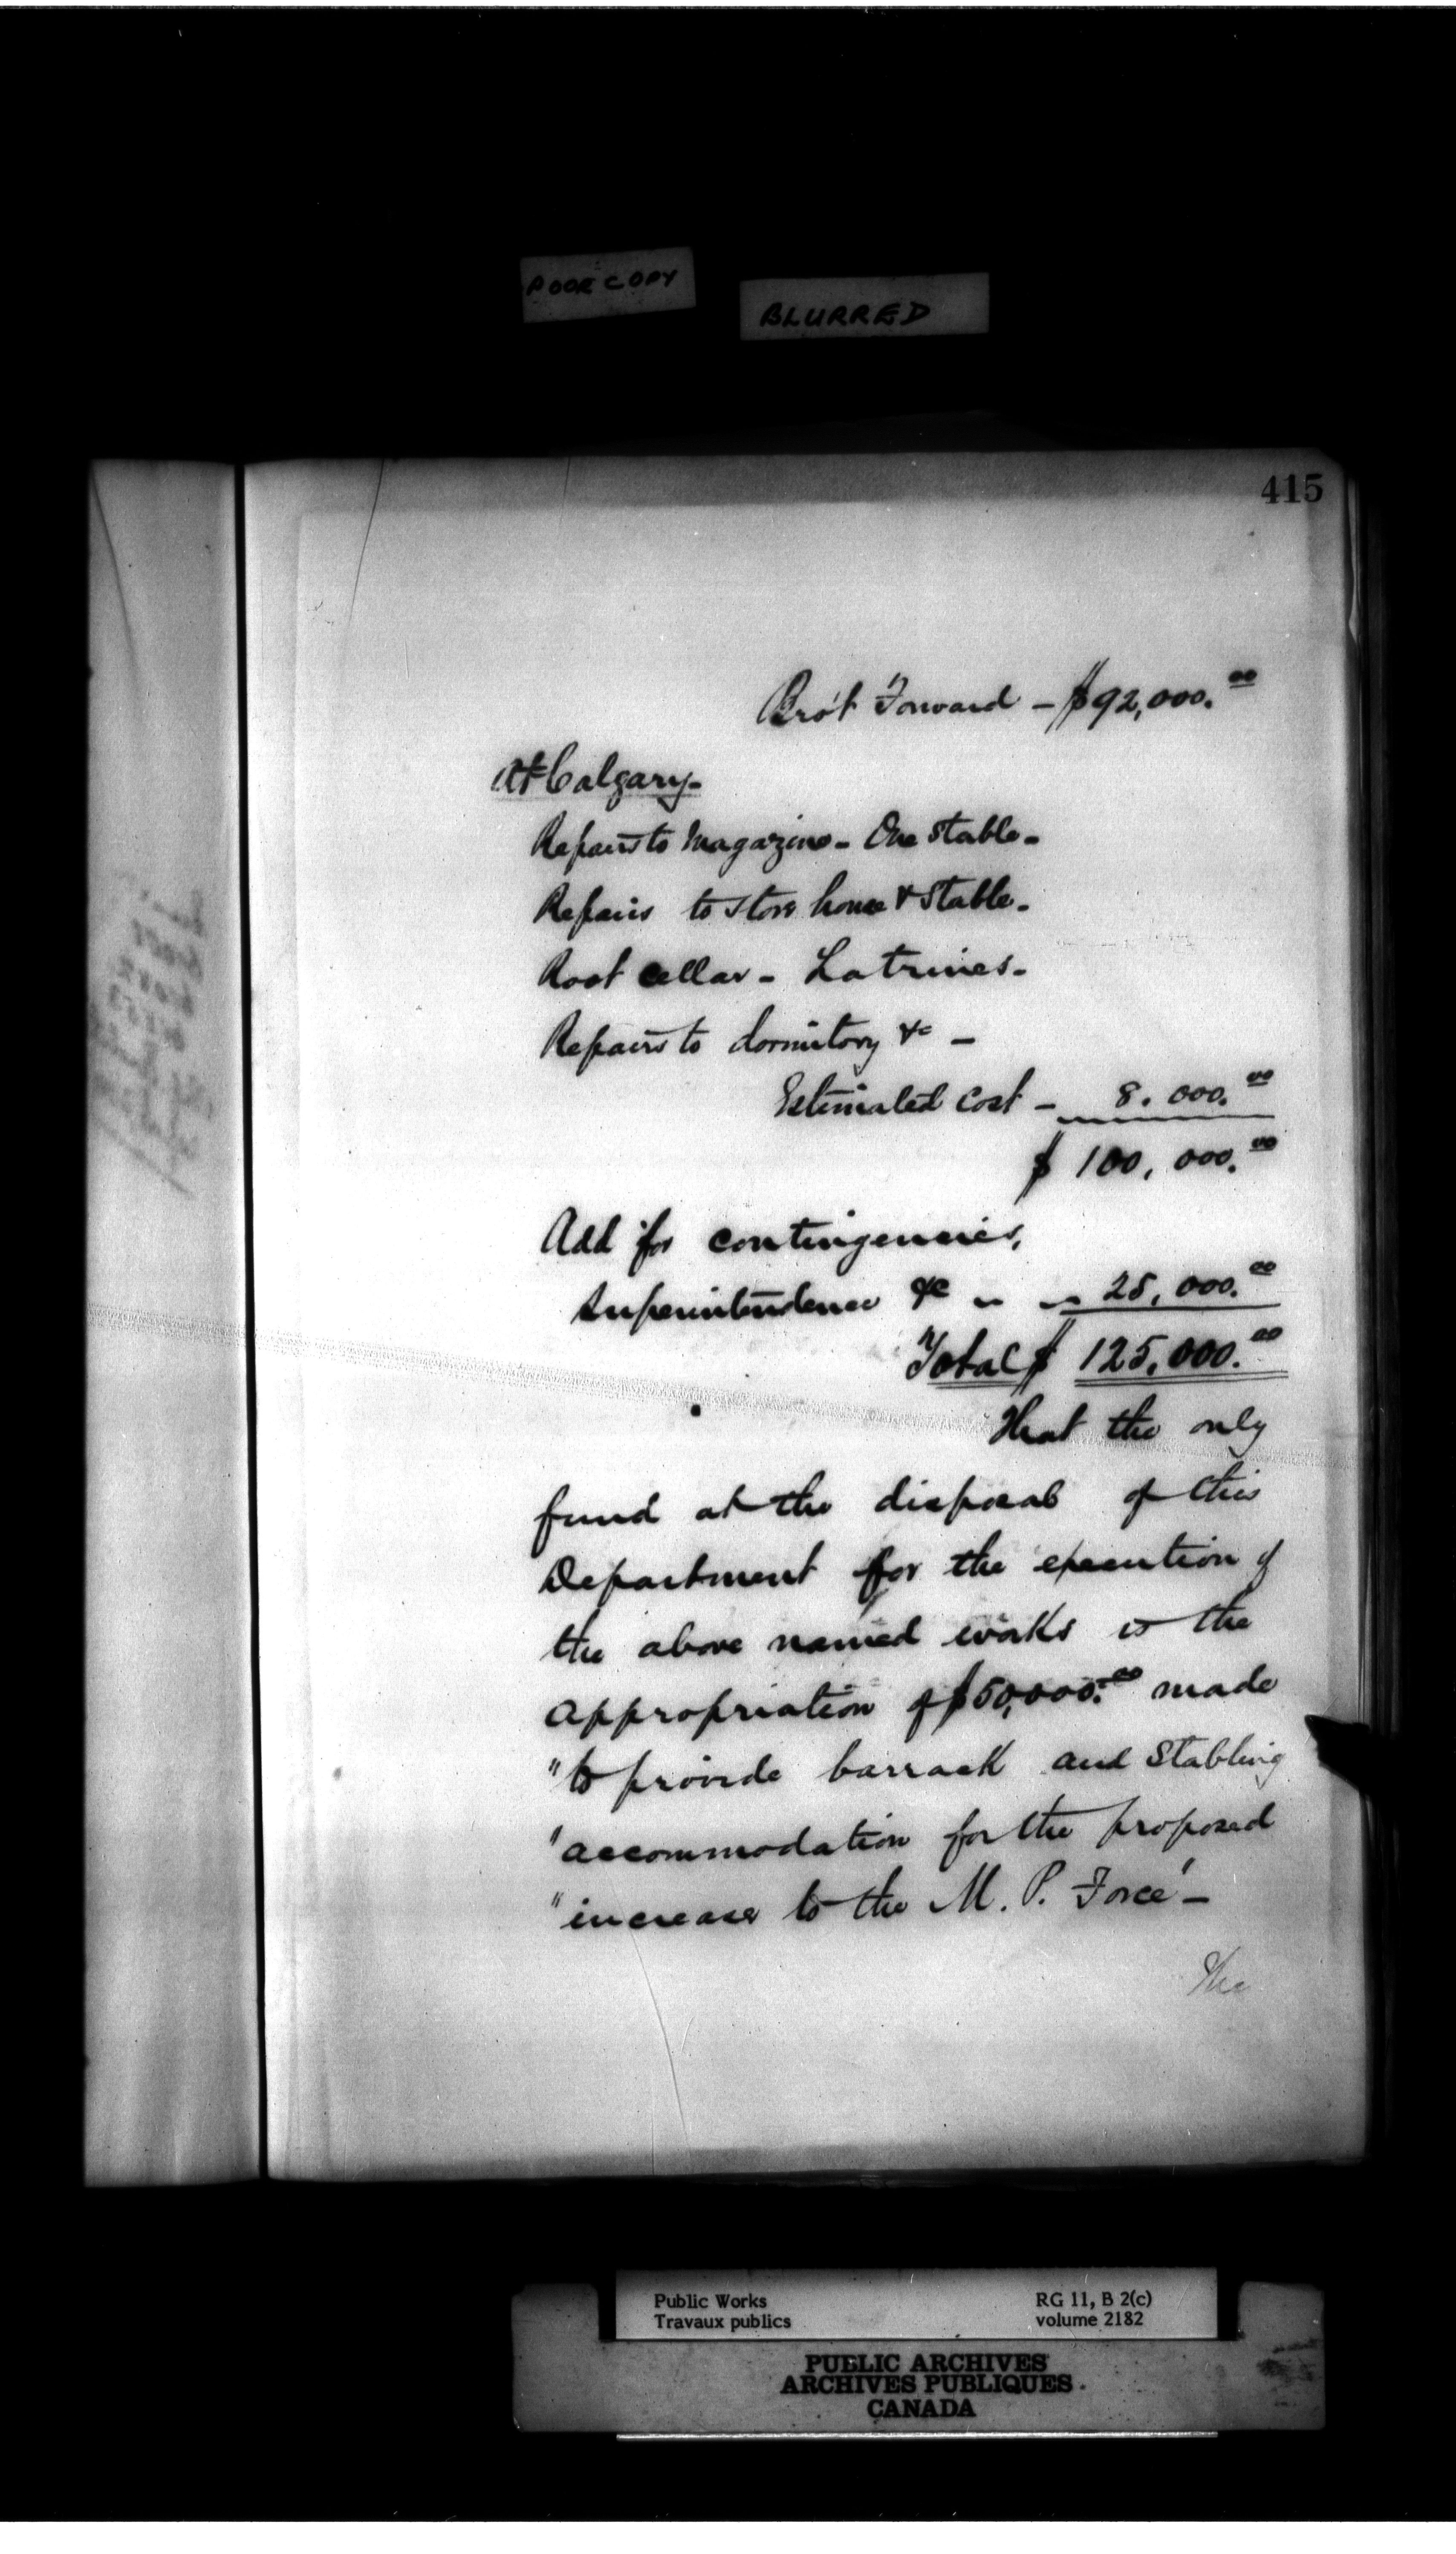 POOR COPY
BLURRED
415
Bro't Forward - $92,000.00
At Calgary-
Repairs to Magazine - One Stable -
Repairs to Store house & Stable -
Root Cellar - Latrines -
Repairs to dormitory &c -
Estimated Cost - 8,000.00
$ 100,000.00
Add for contingencies,
Superintendence &c " " 25,000.00
Total $ 125,000.00
That the only
fund at the disposal of this
Department for the execution of
the above named works is the
appropriation of $50,000.00 made
"to provide barrack and Stabling
"accommodation for the proposed
"increase to the M. P. Force" -
The
Public Works
Travaux publics
RG 11, B 2(c)
volume 2182
PUBLIC ARCHIVES
ARCHIVES PUBLIQUES
CANADA